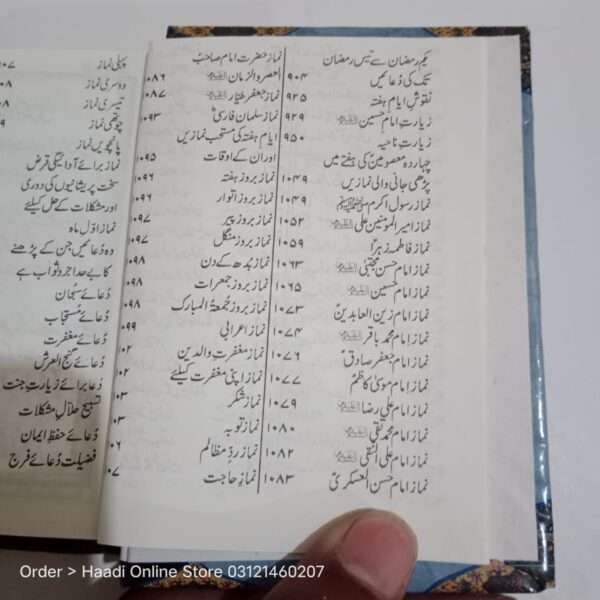 یکم رمضان سے تیس رمضان
تک کی دُعائیں ۹۰۴
نقوش ایام ہفتہ ۹۲۵
زیارت امام حسین علیہ السلام ۹۲۹
زیارت ناحیہ ۹۵۰
چہاردہ معصومینؑ کی ہفتے میں
پڑھی جانی والی نمازیں ۱۰۴۹
نماز رسول اکرم ﷺ ۱۰۴۹
نماز امیر المومنین علی علیہ السلام ۱۰۵۲
نماز فاطمہ زہراؑ ۱۰۵۹
نماز امام حسن مجتبیٰ علیہ السلام ۱۰۶۳
نماز امام حسین علیہ السلام ۱۰۶۵
نماز امام زین العابدینؑ ۱۰۷۳
نماز امام محمد باقر علیہ السلام ۱۰۷۴
نماز امام جعفر صادقؑ ۱۰۷۶
نماز امام موسیٰ کاظمؑ ۱۰۷۷
نماز امام علی رضا علیہ السلام ۱۰۷۹
نماز امام محمد تقی علیہ السلام ۱۰۸۰
نماز امام علی النقی علیہ السلام ۱۰۸۲
نماز امام حسن العسکریؑ ۱۰۸۳
نماز حضرت امام صاحب
العصر والزمان علیہ السلام ۱۰۸۶
نماز جعفر طیار علیہ السلام ۱۰۸۷
نماز سلمان فارسیؓ ۱۰۹۳
ایام ہفتہ کی مستحب نمازیں
اور ان کے اوقات ۱۰۹۵
نماز بروز ہفتہ ۱۰۹۶
نماز بروز اتوار ۱۰۹۶
نماز بروز پیر ۱۰۹۷
نماز بروز منگل ۱۰۹۷
نماز بدھ کے دن ۰۹۸
نماز بروز جمعرات ۰۹۸
نماز بروز جُمعۃ المبارک ۰۹۸
نماز اعرابی ۰۹۹
نماز مغفرت والدین ۱۰۲
نماز اپنی مغفرت کیلئے ۱۰۲
نماز شکر ۰۳
نماز توبہ ۰۳
نماز ردِ مظالم ۰۶
نماز حاجت ۰۷
پہلی نماز ۱۰۷
دوسری نماز ۰۸
تیسری نماز ۰۸
چوتھی نماز ۹
پانچویں نماز
نماز برائے آدائیگی قرض
سخت پریشانیوں کی دوری
اور مشکلات کے حل کیلئے
نماز اوّل ماہ
وہ دُعائیں جن کے پڑھنے
کا بے حد اجر و ثواب ہے
دُعائے سُبحان
دُعائے مُستجاب
دُعائے مغفرت
دُعائے گنج العرش
دُعا برائے زیارت جنت
تسبیح حلال مشکلات
دُعائے حفظ ایمان
فضیلت دُعائے فرج
Order > Haadi Online Store 03121460207